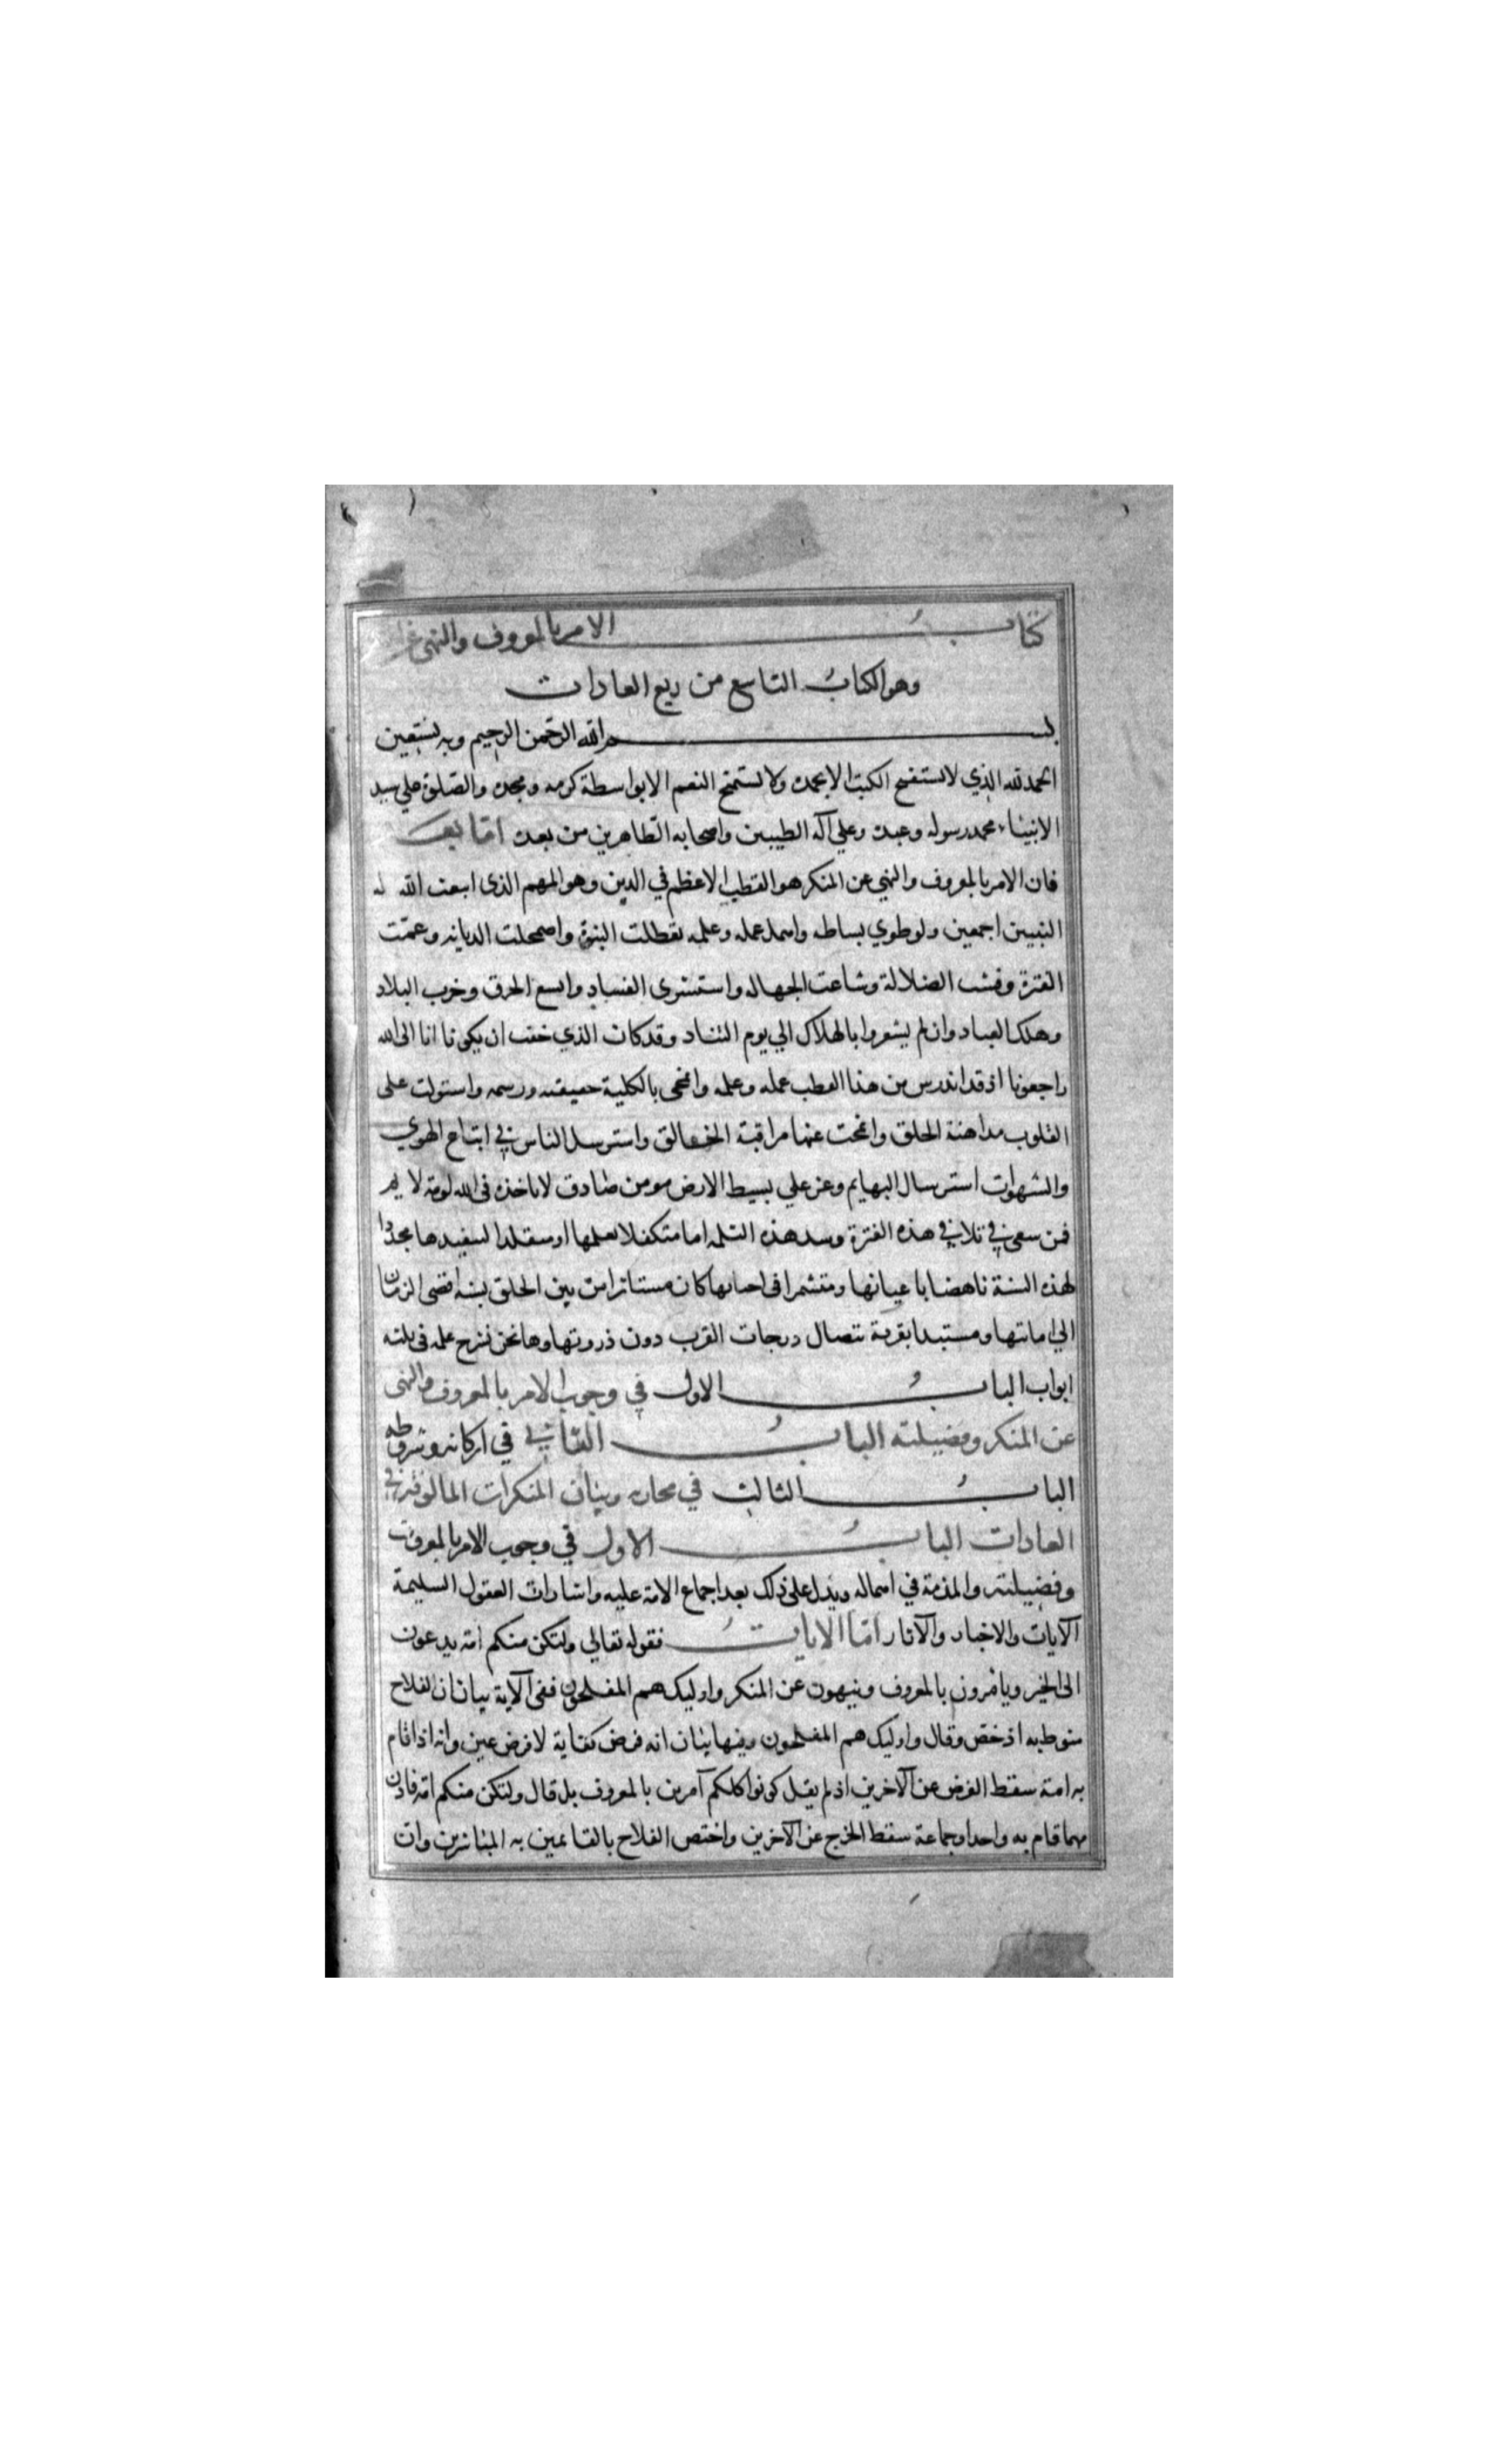 كتاب الامر بالمعروف والنهي
وهو الكتاب التاسع من ربع العادات
بسم الله الرحمن الرحيم وبه نستعين
الحمد لله الذي لا تستفتح الكتب الا بحمده ولا تستمنح النعم الا بواسطة كرمه ومجده والصلوة على سيد
الانبياء محمد رسوله وعبده وعلي آله الطيبين واصحابه الطاهرين من بعده اما بعد
فان الامر بالمعروف والنهي عن المنكر هو القطب الاعظم في الدين وهو المهم الذي ابتعث الله له
النبيين اجمعين ولو طوي بساطه واهمل عمله وعلمه لتعطلت النبوة واضمحلت الديانه وعمت
الفترة وفشت الضلالة وشاعت الجهاله واستشرى الفساد واتسع الخرق وخرب البلاد
وهلك العباد وان لم يشعروا بالهلاك الي يوم التناد وقد كان الذي خفت ان يكونا انا الى الله
راجعونا اذ قد اندرس من هذا القطب عمله وعلمه وانمحى بالكلية حقيقته ورسمه واستولت على
القلوب مداهنة الخلق وانمحت عنها مراقبة الخالق واسترسل الناس في اتباع الهوي
والشهوات استرسال البهايم وعز علي بسيط الارض مومن صادق لا تاخذه في الله لومة لايم
فمن سعى في تلافي هذه الفترة وسد هذه الثلمه اما متكفلا بعملها او متقلدا لتنفيذها مجددا
لهذه السنة ناهضا باعيانها ومتشمرا في احيائها كان مستاثرا من بين الخلق بسنه افضى الزمان
الي اماتتها ومستبدا بقربة تتضال درجات القرب دون ذروتها وها نحن نشرح علمه في ثلثه
ابواب الباب الاول في وجوب الامر بالمعروف والنهى
عن المنكر وفضيلته الباب الثاني في اركانه وشروطه
الباب الثالث في مجاريه وبيان المنكرات المالوفة في
العادات الباب الاول في وجوب الامر بالمعروف
وفضيلته والمذمة في اهماله ويدل على ذلك بعد اجماع الامة عليه واشارات العقول السليمة
الآيات والاخبار والآثار اما الايات فقوله تعالي ولتكن منكم امة يدعون
الى الخير ويامرون بالمعروف وينهون عن المنكر واوليك هم المفلحون ففي الآية بيان ان الفلاح
منوط به اذ خص وقال واوليك هم المفلحون وفيها بيان انه فرض كفاية لا فرض عين وانه اذا قام
به امة سقط الفرض عن الآخرين اذ لم يقل كونوا كلكم آمرين بالمعروف بل قال ولتكن منكم امة فاذن
مهما قام به واحد او جماعة سقط الحرج عن الآخرين واختص الفلاح بالقائمين به المباشرين وان